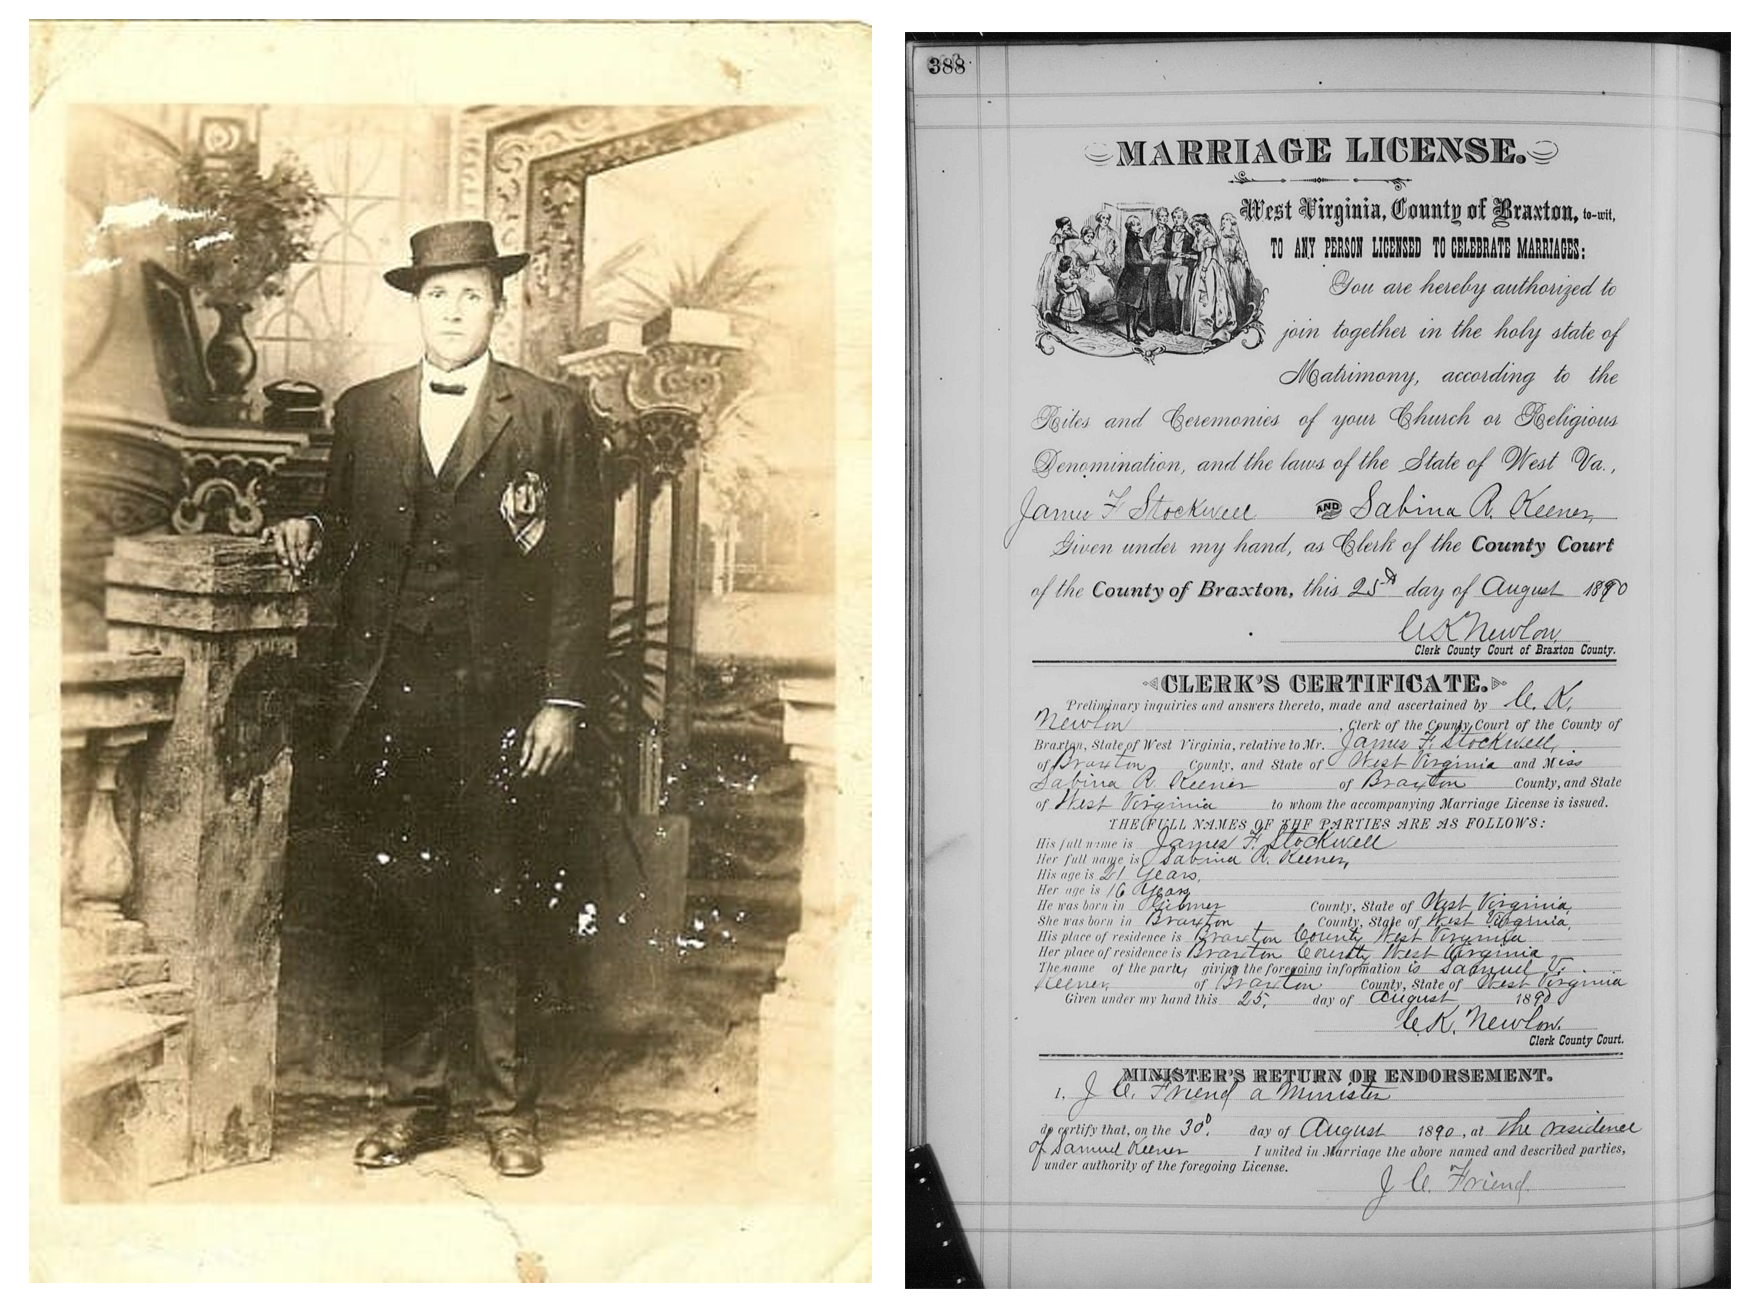 388
MARRIAGE LICENSE.
West Virginia, County of Braxton, to-wit,
TO ANY PERSON LICENSED TO CELEBRATE MARRIAGES:
You are hereby authorized to
join together in the holy state of
Matrimony, according to the
Rites and Ceremonies of your Church or Religious
Denomination, and the laws of the State of West Va.,
James F Stockwell AND Sabina R. Keener,
Given under my hand, as Clerk of the County Court
of the County of Braxton, this 25th day of August 1890
C K Newlon
Clerk County Court of Braxton County.
CLERK'S CERTIFICATE.
Preliminary inquiries and answers thereto, made and ascertained by C. K.
Newlon, Clerk of the County Court of the County of
Braxton, State of West Virginia, relative to Mr. James F. Stockwell,
of Braxton County, and State of West Virginia and Miss
Sabina R. Keener of Braxton County, and State
of West Virginia to whom the accompanying Marriage License is issued.
THE FULL NAMES OF THE PARTIES ARE AS FOLLOWS:
His full name is James F. Stockwell
Her full name is Sabina R. Keener,
His age is 21 Years,
Her age is 16 Years
He was born in Gilmer County, State of West Virginia,
She was born in Braxton County, State of West Virginia,
His place of residence is Braxton County West Virginia
Her place of residence is Braxton County West Virginia
The name of the party giving the foregoing information is Samuel
Keener, of Braxton County, State of West Virginia
Given under my hand this 25, day of August 1890
C.K. Newlon.
Clerk County Court.
MINISTER'S RETURN OR ENDORSEMENT.
I, J C. Friend a Minister
do certify that, on the 30d. day of August 1890, at the residence
of Samuel Keener I united in Marriage the above named and described parties,
under authority of the foregoing License.
J C. Friend